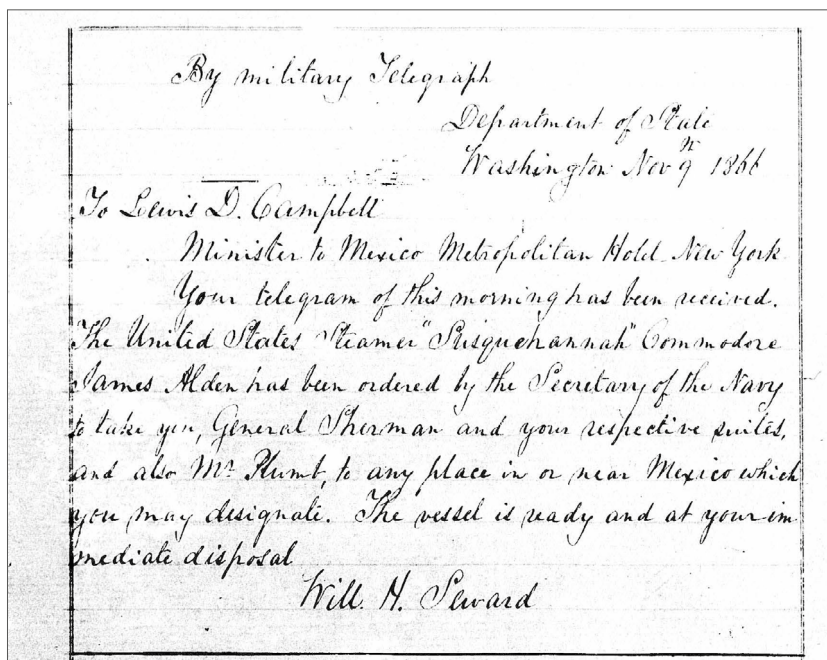 By military Telegraph
Department of State
Washington Nov 9th 1866
To Lewis D. Campbell
Minister to Mexico Metropolitan Hotel New York
Your telegram of this morning has been received.
The United States Steamer "Susquehannah" Commodore
James Alden has been ordered by the Secretary of the Navy
to take you, General Sherman and your respective suites,
and also Mr Plumb, to any place in or near Mexico which
you may designate. The vessel is ready and at your im
mediate disposal
Will. H. Seward